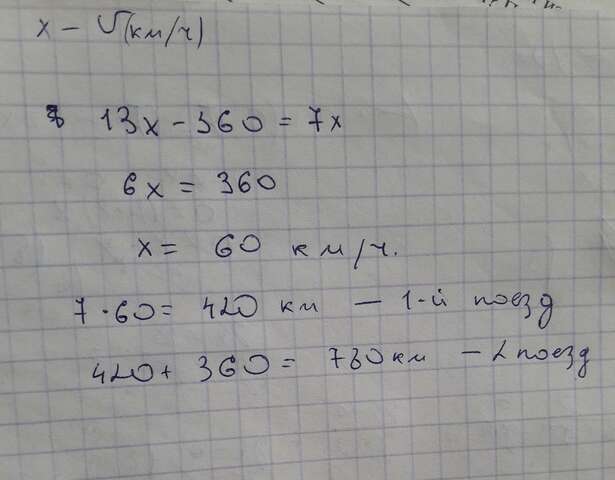 x – V (км/ч)
13x – 360 = 7x
6x = 360
x = 60 км/ч.
7 · 60 = 420 км – 1-й поезд
420 + 360 = 780 км – 2 поезд